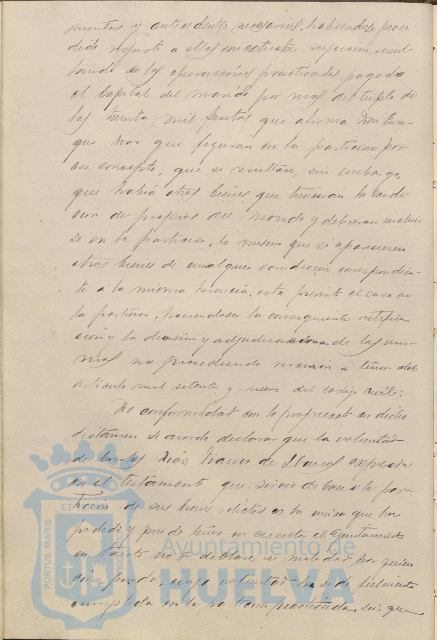 mentos y antecedentes necesarios, habiendose proce-
dido respecto a ellos con estricta sujecion, resul-
tando de las operaciones practicadas pagado
el capital del marido por mas del triplo de
las treinta mil pesetas que afirma Don Enri-
que que figuran en la particion por
ese concepto, que si resultare, sin embargo,
que habia otros bienes que tuvieran la condi-
cion de propios del marido y debieran incluir
se en la particion, lo mismo que si apareciesen
otros bienes de cualquier condicion correspondien-
te á la misma herencia, esta previsto el caso en
la particion, haciendose la consiguiente rectifica
cion y la division y adjudicacion de los
no procediendo rescision a tenor del
articulo mil setenta y nueve del codigo civil:
De conformidad con lo propuesto en dicho
dictamen se acordó declarar que la voluntad
de Diás Franco de expresada
en el testamento que sirvió de base á la par-
ticion de sus bienes, dictes es la unica que ha
podido y puede tener en cuenta el Ayuntamiento
en tanto no se declare su nulidad por quien
pueda, cuya voluntad ha sido fielmente
cumplida en la particion practicada, sin que
PORTUS MARIS
Ayuntamiento de
HUELVA